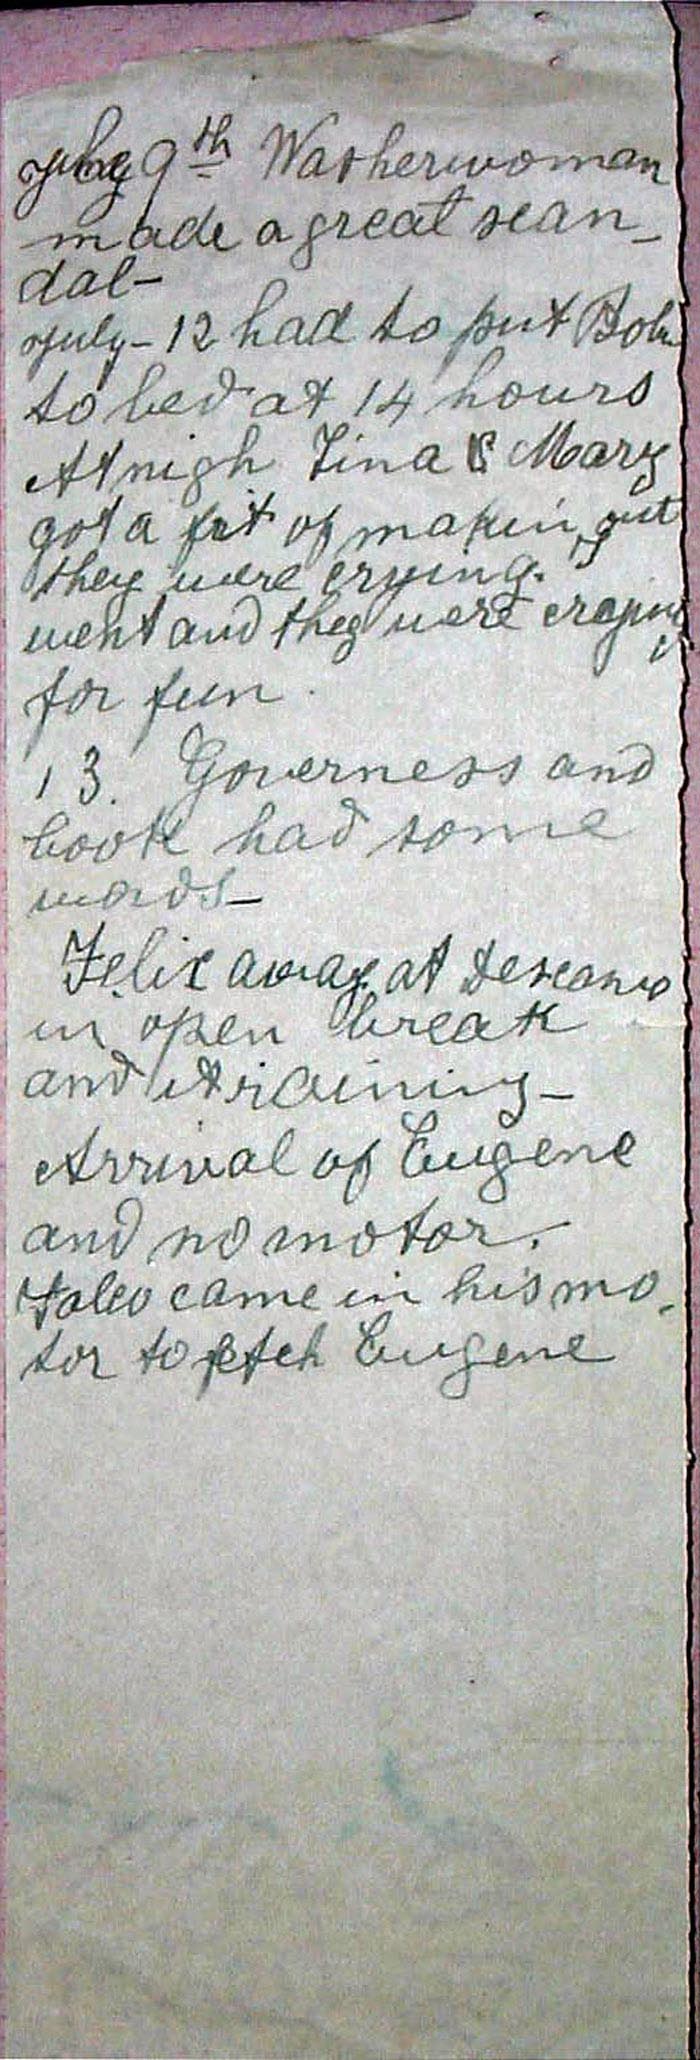 July 9th Washerwoman
made a great scan-
dal-
July-12 had to put Bob
to bed at 14 hours
At nigh Tina & Mary
got a fit of making out
they were crying.
went and they were crying
for fun.
13. Governess and
cook had some
words-
Felix away at descanso
in open break
and it raining-
Arrival of Eugene
and no motor.
came in his mo.
tor to fetch Eugene